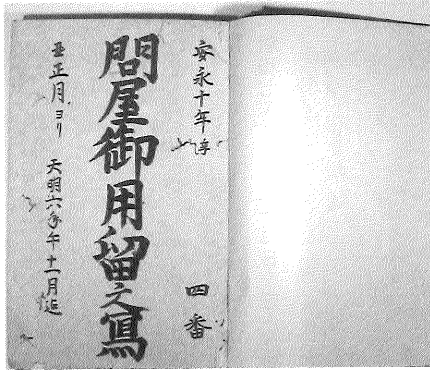 安永十年
四番
問屋御用留之寫
丑正月ヨリ 天明六年午十一月迄